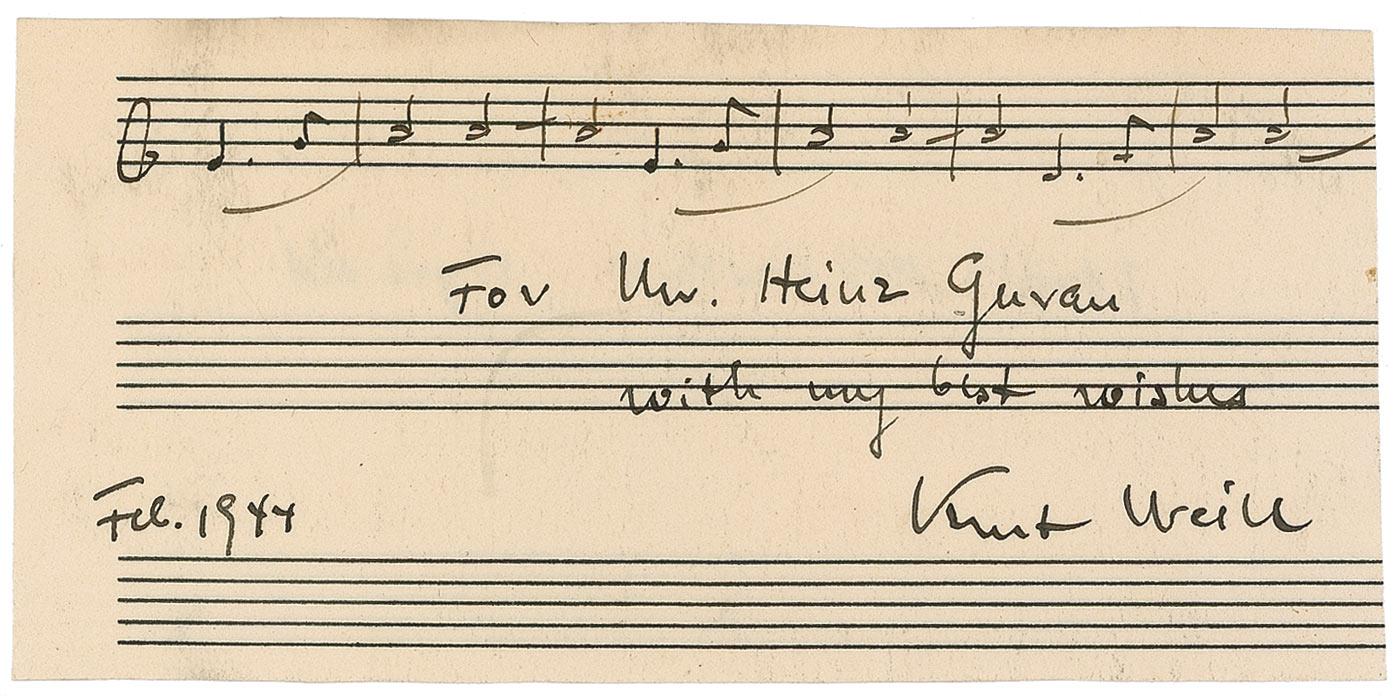 For Mr. Heinz Guran
with my best wishes
Feb. 1944
Kurt Weill